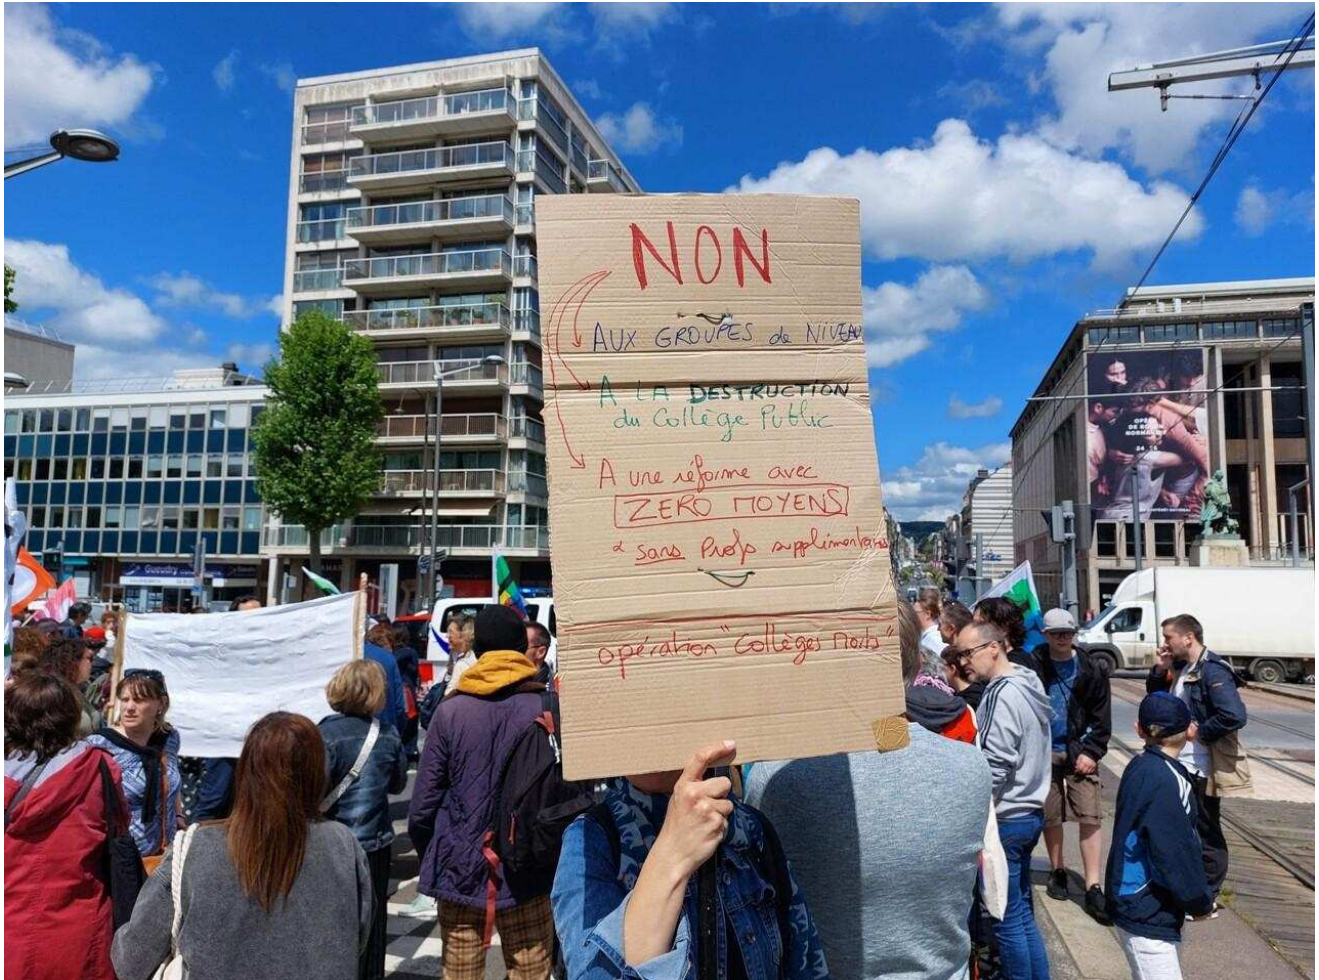 NON
AUX GROUPES de NIVEAU
A LA DESTRUCTION
du Collège Public
A une réforme avec
ZERO MOYENS
& sans Profs supplémentaires
opération "Collèges morts"
OPÉRA
DE ROUEN
NORMANDIE
Gueudry